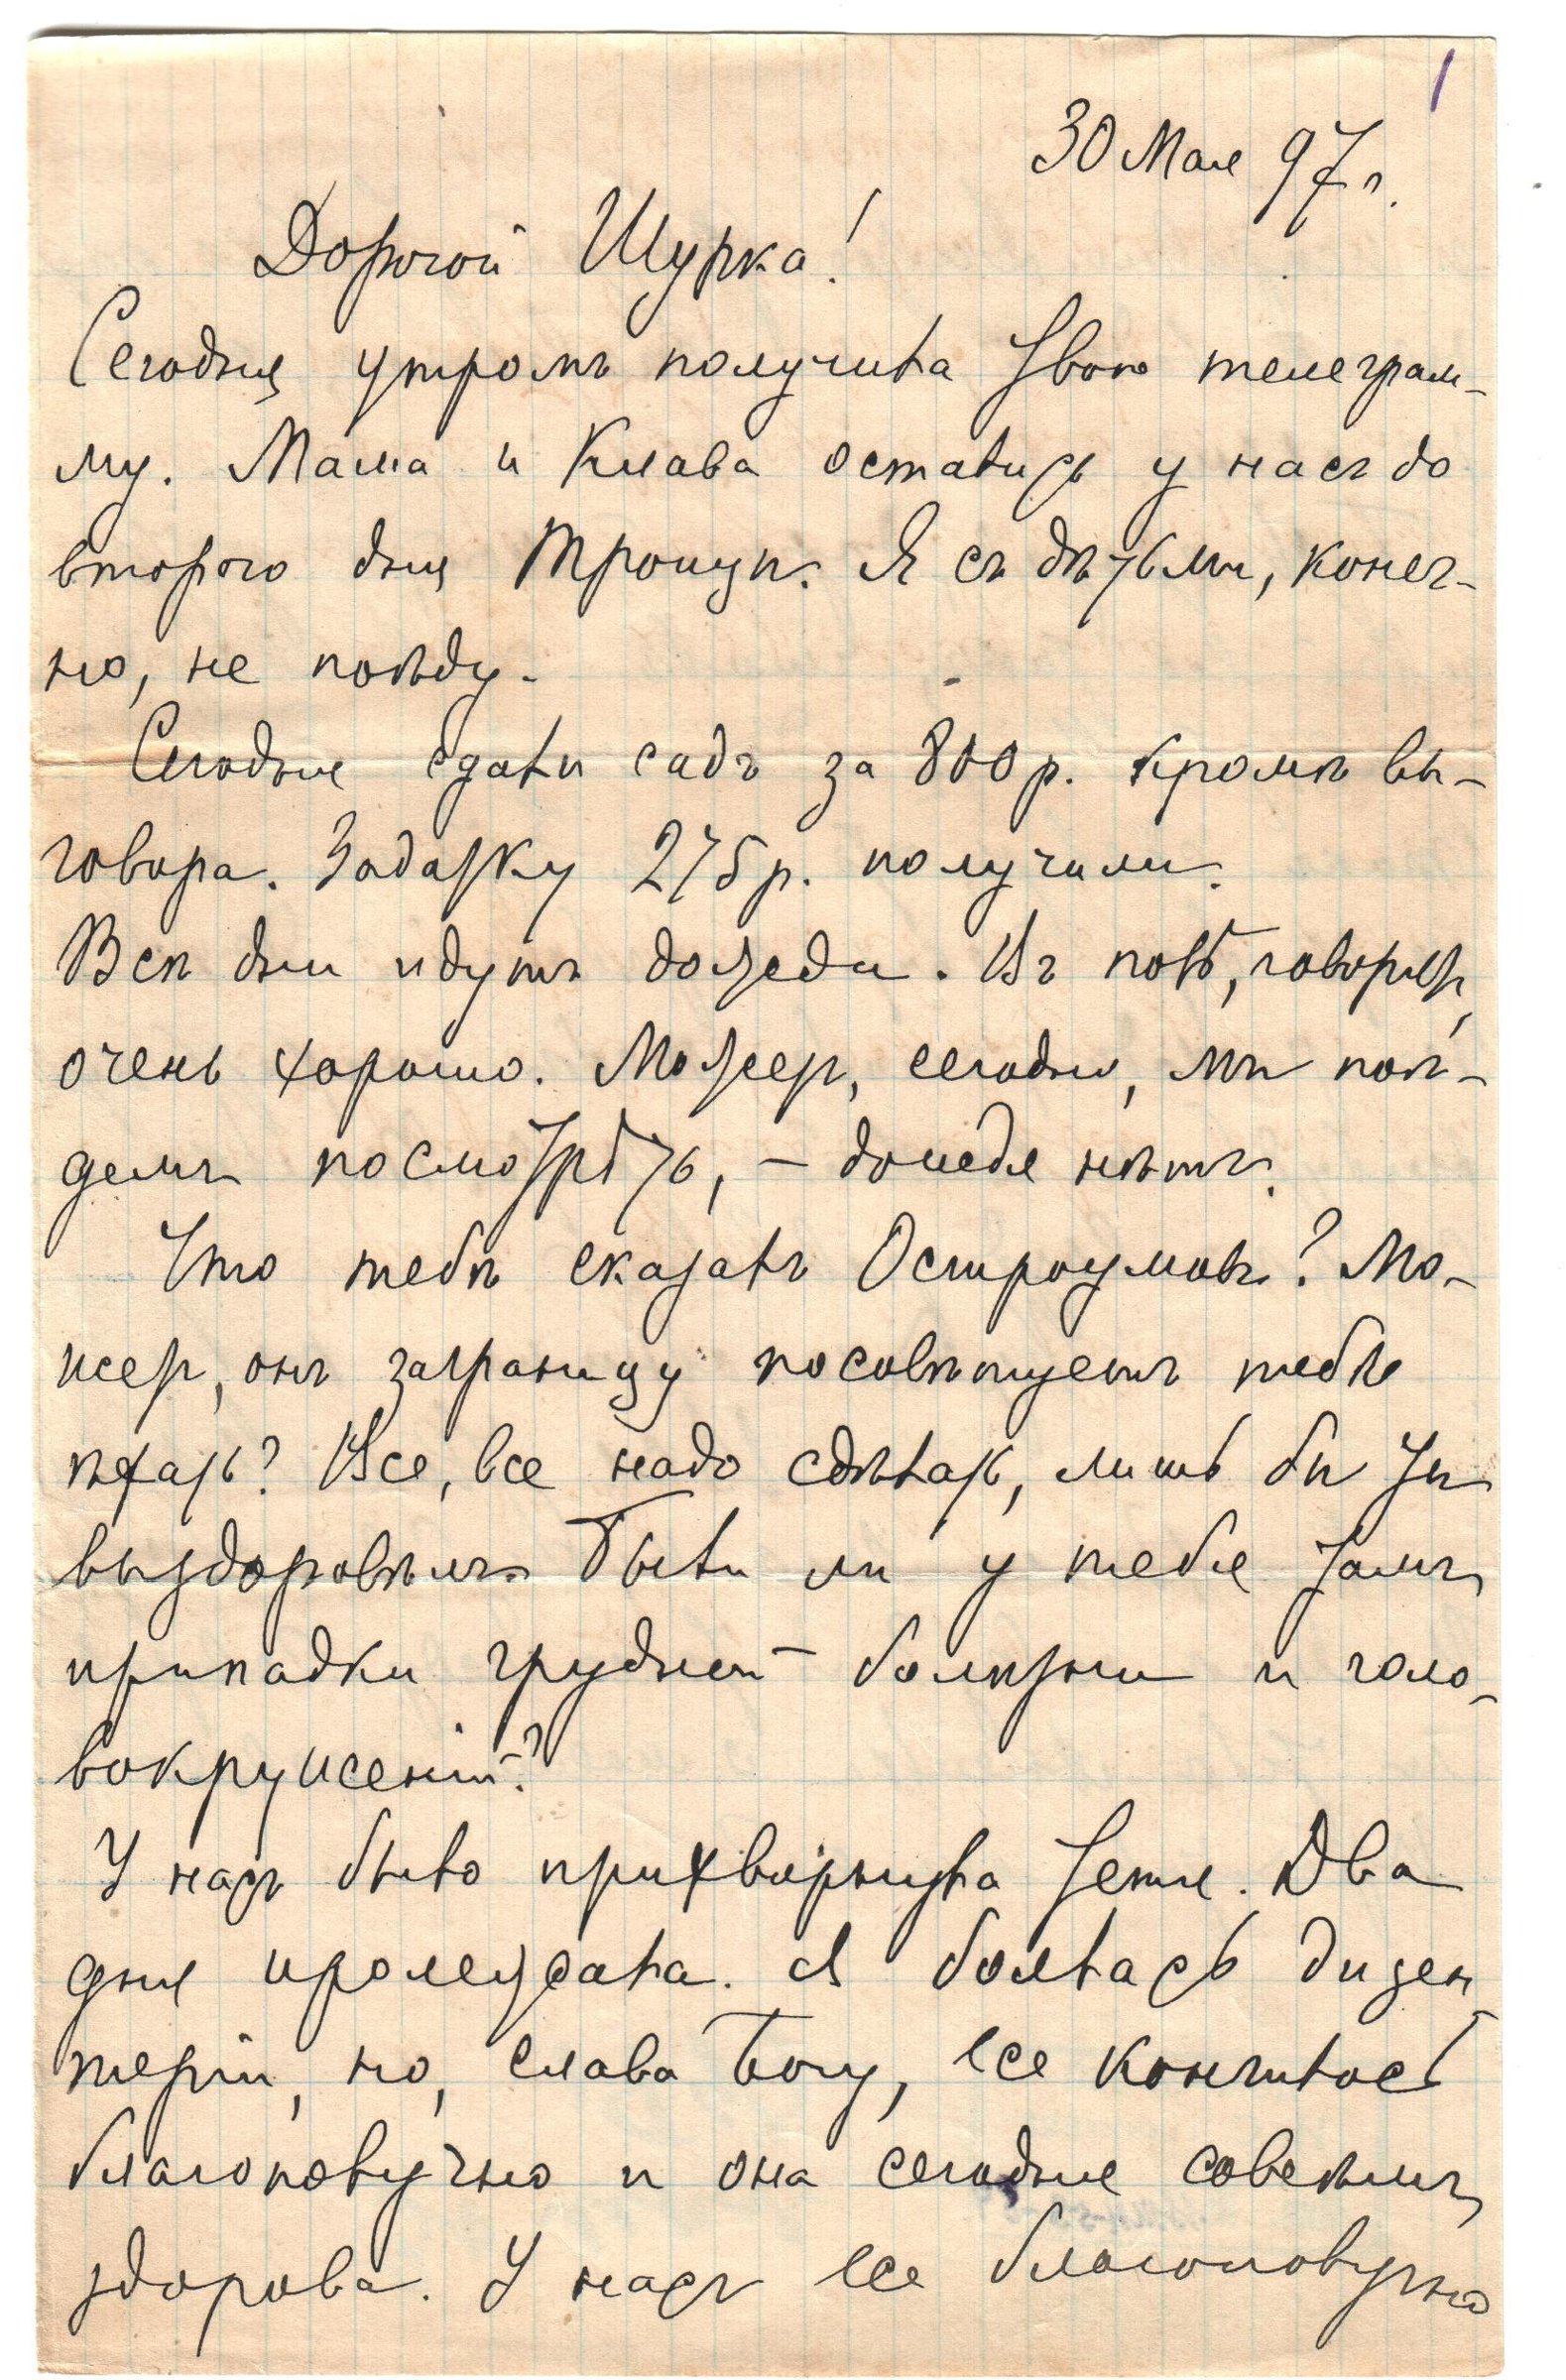 1
30 Мая 97 г.
Дорогой Шурка!
Сегодня утромъ получила твою телеграм-
му. Мама и Клава остались у насъ до
второго дня Троицы. Я съ дѣтьми, конеч-
но, не поѣду.
Сегодня сдали садъ за 800 р. кромѣ вы-
говора. Задатку 275 р. получили.
Всѣ дни идутъ дожди. Въ полѣ, говорятъ,
очень хорошо. Можетъ, сегодня, мы пой-
демъ посмотрѣть, – дождя нѣтъ.
Что тебѣ сказалъ Остроумовъ? Мо-
жетъ, онъ заграницу посовѣтуетъ тебѣ
ѣхать? Все, все надо сдѣлать, лишь бы ты
выздоровѣлъ. Были ли у тебя тамъ
припадки грудной болѣзни и голо-
вокруженій?
У насъ было прихворнула Тетя. Два
дня пролежала. Я боялась дизен
теріи, но, слава Богу, все кончилось
благополучно и она сегодня совсѣмъ
здорова. У насъ все благополучно